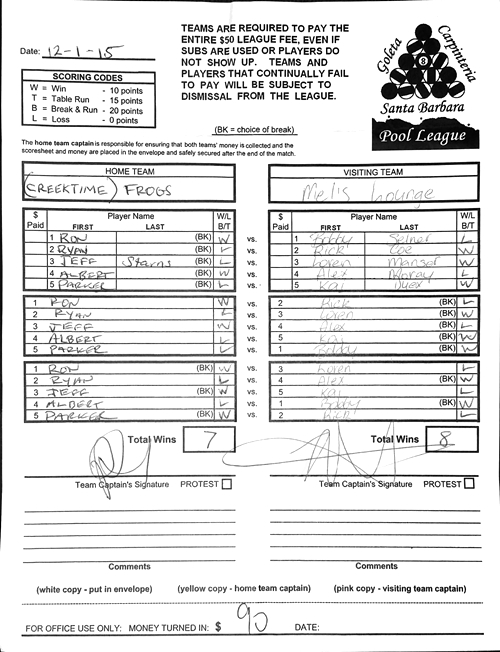 TEAMS ARE REQUIRED TO PAY THE
ENTIRE $50 LEAGUE FEE, EVEN IF
SUBS ARE USED OR PLAYERS DO
NOT SHOW UP. TEAMS AND
PLAYERS THAT CONTINUALLY FAIL
TO PAY WILL BE SUBJECT TO
DISMISSAL FROM THE LEAGUE.
Date: 12-1-15
SCORING CODES
W = Win - 10 points
T = Table Run - 15 points
B = Break & Run - 20 points
L = Loss - 0 points
(BK = choice of break)
Goleta
Carpinteria
8
Santa Barbara
Pool League
The home team captain is responsible for ensuring that both teams' money is collected and the
scoresheet and money are placed in the envelope and safely secured after the end of the match.
HOME TEAM VISITING TEAM
(CREEKTIME) FROGS Mel's Lounge
$ Paid Player Name FIRST LAST W/L B/T $ Paid Player Name FIRST LAST W/L B/T
1 RON (BK) W vs. 1 Bobby L
2 RYAN (BK) L vs. 2 Rick Zoe W
3 JEFF Starns (BK) L vs. 3 Loren Manser W
4 ALBERT (BK) W vs. 4 Alex L
5 PARKER (BK) L vs. 5 Kaj W
1 RON W vs. 2 Rick (BK) L
2 RYAN L vs. 3 Loren (BK) W
3 JEFF W vs. 4 Alex (BK) L
4 ALBERT L vs. 5 Kaj (BK) W
5 PARKER L vs. 1 Bobby (BK) W
1 RON (BK) W vs. 3 Loren L
2 RYAN L vs. 4 Alex (BK) W
3 JEFF (BK) W vs. 5 Kaj L
4 ALBERT L vs. 1 Bobby (BK) W
5 PARKER (BK) W vs. 2 Rick L
Total Wins 7 Total Wins 8
Team Captain's Signature PROTEST Team Captain's Signature PROTEST
Comments Comments
(white copy - put in envelope) (yellow copy - home team captain) (pink copy - visiting team captain)
FOR OFFICE USE ONLY: MONEY TURNED IN: $ 90 DATE: